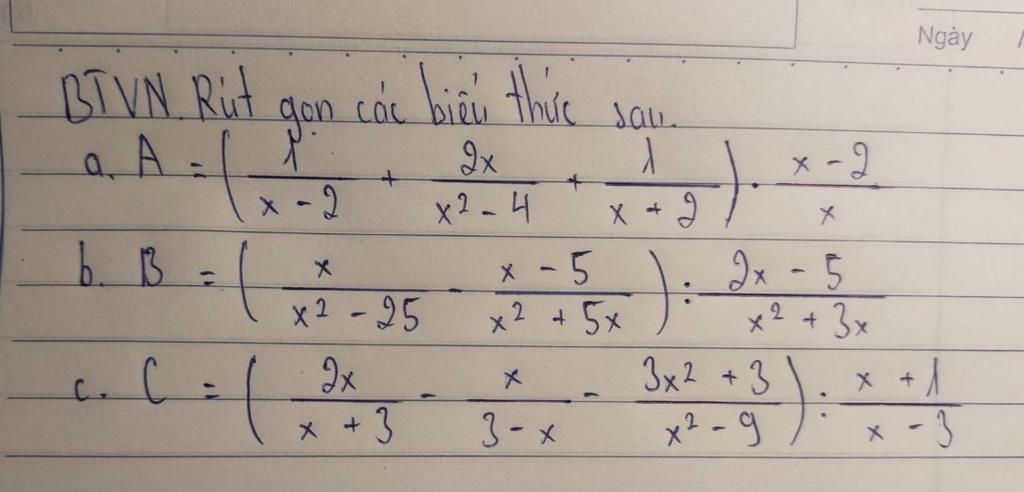 Ngày /
BTVN. Rút gọn các biểu thức sau.
a. A = ( 1/(x - 2) + 2x/(x² - 4) + 1/(x + 2) ) . (x - 2)/x
b. B = ( x/(x² - 25) - (x - 5)/(x² + 5x) ) : (2x - 5)/(x² + 3x)
c. C = ( 2x/(x + 3) - x/(3 - x) - (3x² + 3)/(x² - 9) ) : (x + 1)/(x - 3)